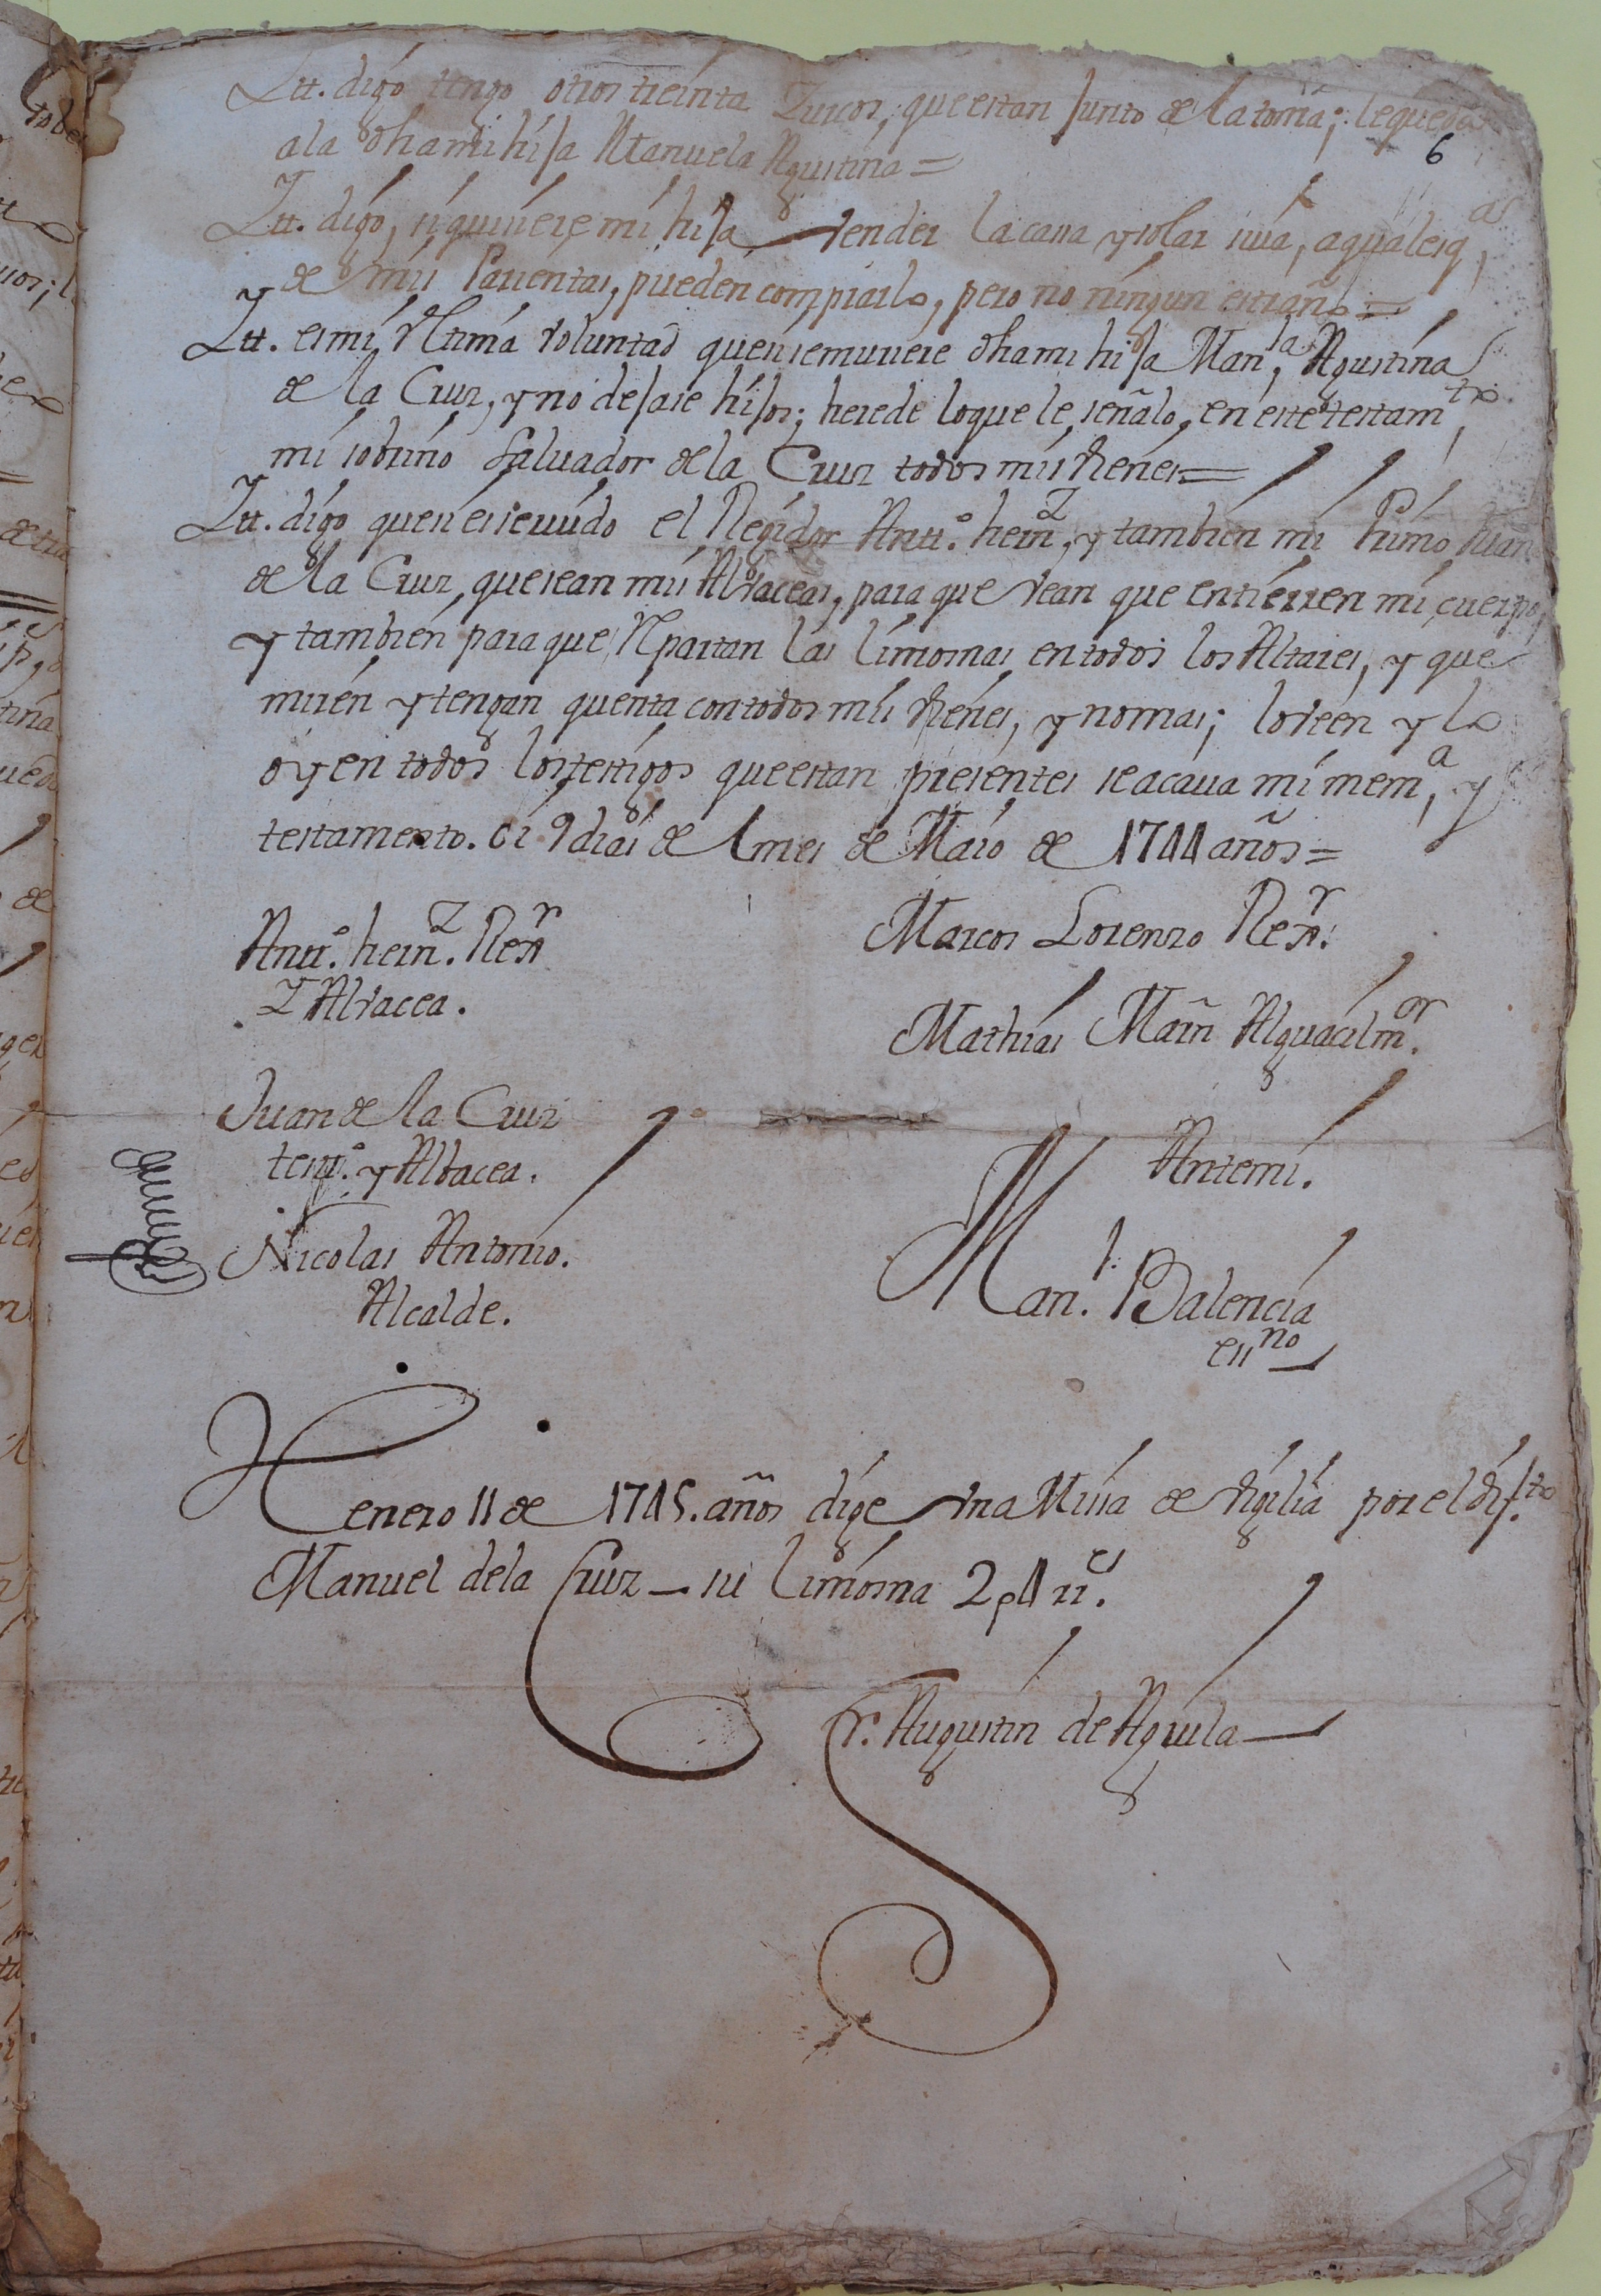 Itt. digo tengo otros treinta Zurcos, que estan junto de la toma; le queda
a la dha mi hija Manuela Agustina =
Itt. digo, si quiziere mi hija vender la casa y solar suia, a qualesq.as
de mis Parientas, pueden comprarlo, pero no ningun estraño =
Itt. es mi Vltima voluntad quen se muriere dha mi hija Man.la Agustina
de la Cruz, y no dejare hijos; herede lo que le señalo, en este testam.to
mi sobrino Salvador de la Cruz todos mis vienes =
Itt. digo quen es servido el Regidor Antt.o hern.z y tambien mi Primo Juan
de la Cruz, que sean mis Alvaceas, para que vean que entierren mi cuerpo,
y tambien para que Repartan las limosnas en todos los Altares, y que
miren y tengan quenta con todos mis vienes, y no mas; lo veen y lo
oyen todos los testigos que estan presentes se acava mi mem.a y
testamento. oi 9 dias de l mes de Maio de 1744 años =
Antt.o hern.z Rexr
Y Alvacea.
Marcos Lorenzo Rexr.
Mathias Marñ Alguacil m.or
Juan de la Cruz
test.o y Albacea.
Nicolas Antonio.
Alcalde.
Antemi.
Man.l Balencia
ess.no
Henero 11 de 1745. años dige vna Missa de vigilia por el dif.to
Manuel de la Cruz — su limosna 2 p 4 rr.es
Fr. Augustin de Aguila
6